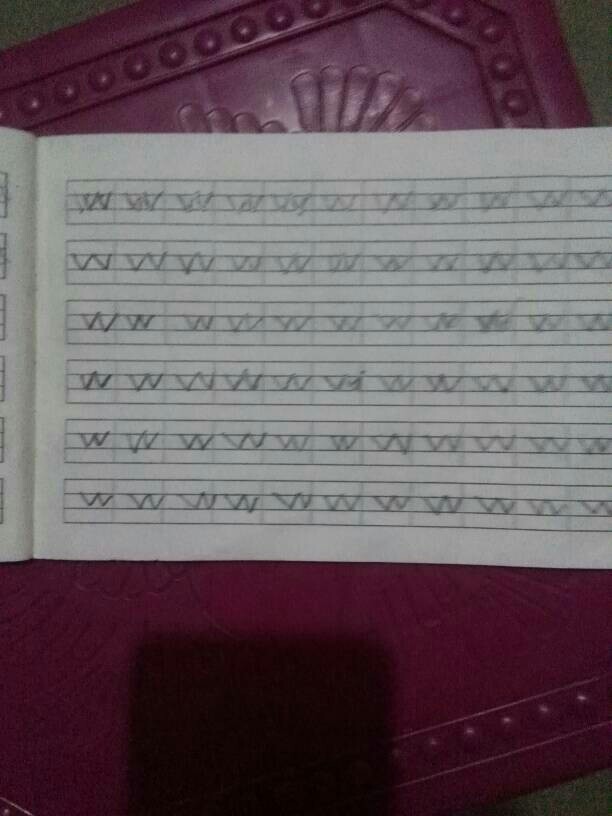 w w w w w w w w w w w
w w w w w w w w w w w
w w w w w w w w w w w
w w w w w w w w w w w
w w w w w w w w w w w
w w w w w w w w w w w